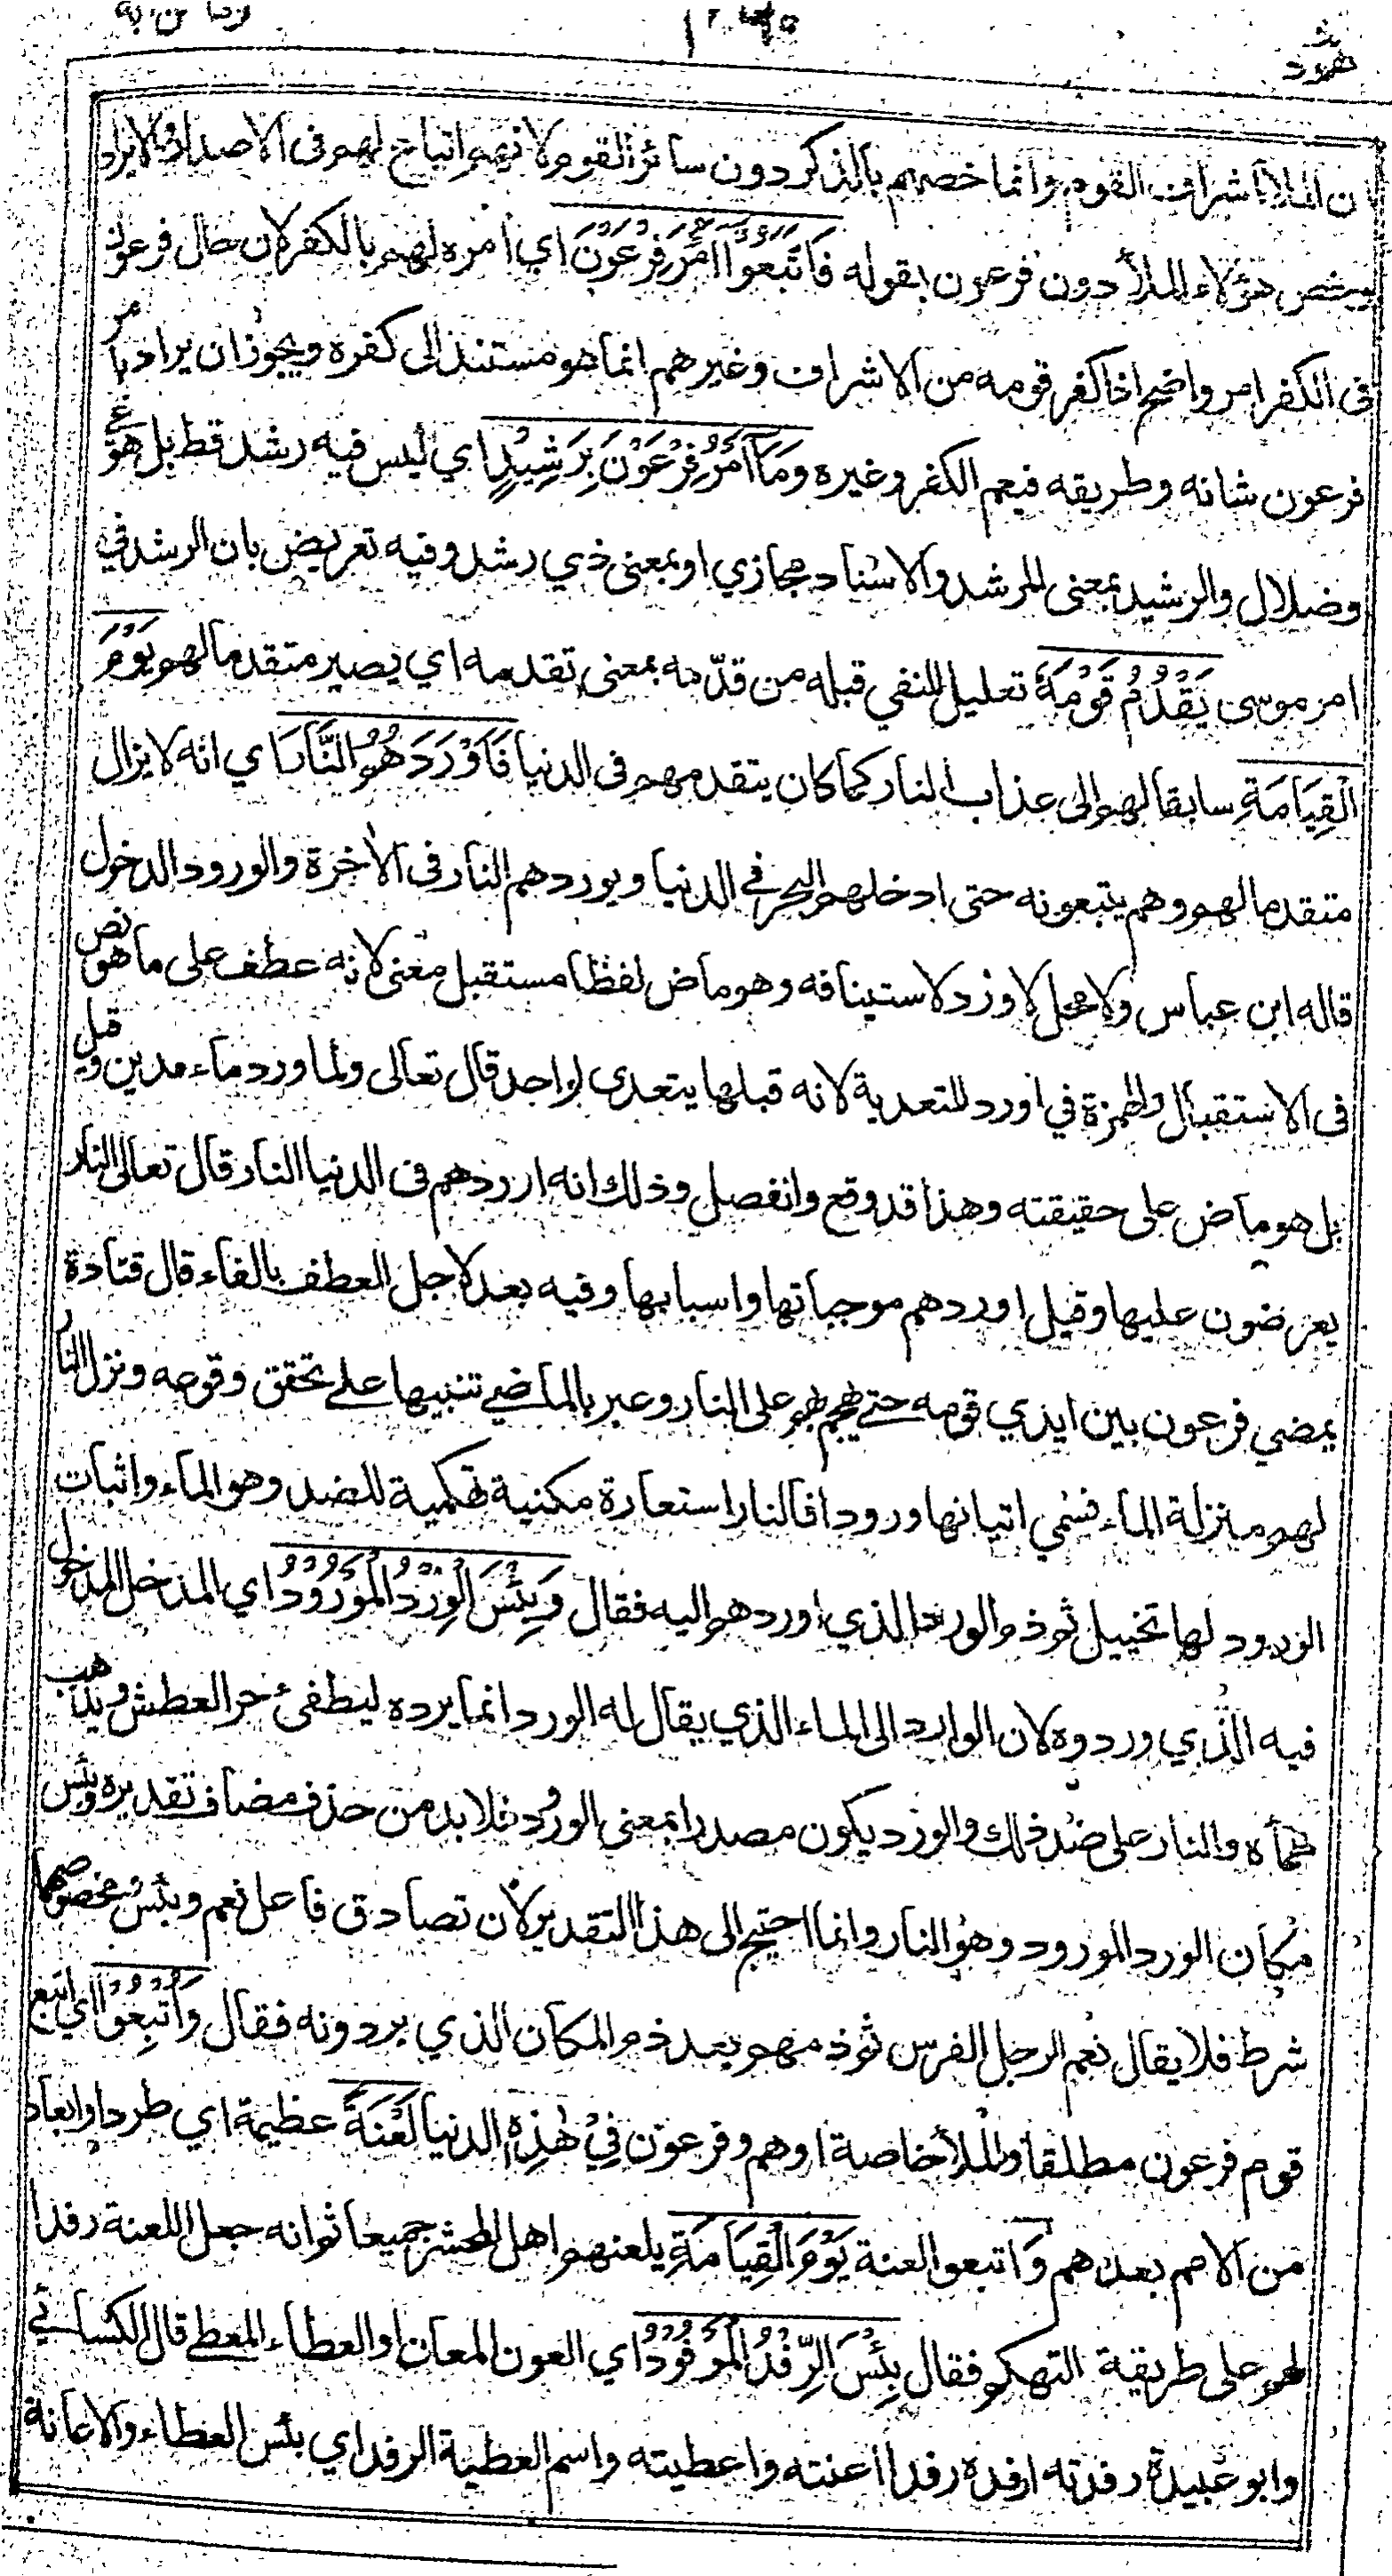 هود
وما من دابة
ان الملأ اشراف القوم وانما خصهم بالذكر دون سائر القوم لانهم اتباع لهم في الاصدار والايراد
يخص هؤلاء الملأ دون فرعون بقوله فَاتَّبَعُوا أَمْرَ فِرْعَوْنَ اي امره لهم بالكفر لان حال فرعون
في الكفر امر واضح اذا كفر قومه من الاشراف وغيرهم انما هو مستند الى كفره ويجوز ان يراد بامر
فرعون شانه وطريقه فيعم الكفر وغيره وَمَا أَمْرُ فِرْعَوْنَ بِرَشِيدٍ اي ليس فيه رشد قط بل هو غي
وضلال والرشيد بمعنى المرشد والاسناد مجازي او بمعنى ذي رشد وفيه تعريض بان الرشد في
امر موسى يَقْدُمُ قَوْمَهُ تعليل للنفي قبله من قدمه بمعنى تقدمه اي يصير متقدما لهم يَوْمَ
الْقِيَامَةِ سابقا لهم الى عذاب النار كما كان يتقدمهم في الدنيا فَأَوْرَدَهُمُ النَّارَ اي انه لا يزال
متقدما لهم وهم يتبعونه حتى ادخلهم البحر في الدنيا ويوردهم النار في الاخرة والورود الدخول
قاله ابن عباس ولا محل لاورد لاستينافه وهو ماض لفظا مستقبل معنى لانه عطف على ما هو نص
في الاستقبال والهمزة في اورد للتعدية لانه قبلها يتعدى لواحد قال تعالى ولما ورد ماء مدين وقيل
بل هو ماض على حقيقته وهذا قد وقع وانفصل وذلك انه اوردهم في الدنيا النار قال تعالى النار
يعرضون عليها وقيل اوردهم موجباتها واسبابها وفيه بعد لاجل العطف بالفاء قال قتادة
يمضي فرعون بين ايدي قومه حتى يهجم بهم على النار وعبر بالماضي تنبيها على تحقق وقوعه ونزل النار
لهم منزلة الماء فسمي اتيانها ورودا فالنار استعارة مكنية تهكمية للضد وهو الماء واثبات
الورود لها تخييل ثم ذم الورد الذي اوردهم اليه فقال وَبِئْسَ الْوِرْدُ الْمَوْرُودُ اي المدخل المدخول
فيه الذي وردوه لان الوارد الى الماء الذي يقال له الورد انما يرده ليطفئ حر العطش ويذهب
ظمأه والنار على ضد ذلك والورد يكون مصدرا بمعنى الورود فلا بد من حذف مضاف تقديره وبئس
مكان الورد المورود وهو النار وانما احتيج الى هذا التقدير لان تصادق فاعل نعم وبئس ومخصوصهما
شرط فلا يقال نعم الرجل الفرس ثم ذمهم بعد ذم المكان الذي يردونه فقال وَأُتْبِعُوا اي اتبع
قوم فرعون مطلقا والملأ خاصة او هم وفرعون فِي هَٰذِهِ الدنيا لَعْنَةً عظيمة اي طردا وابعادا
من الامم بعدهم وَ اتبعوا لعنة يَوْمَ الْقِيَامَةِ يلعنهم اهل المحشر جميعا ثم انه جعل اللعنة رفدا
لهم على طريقة التهكم فقال بِئْسَ الرِّفْدُ الْمَرْفُودُ اي العون المعان او العطاء المعطى قال الكسائي
وابو عبيدة رفدته ارفده رفدا اعنته واعطيته واسم العطية الرفد اي بئس العطاء والاعانة